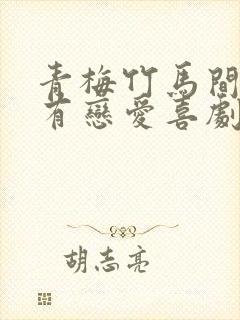 青梅竹馬間
有戀愛喜劇
胡志亮